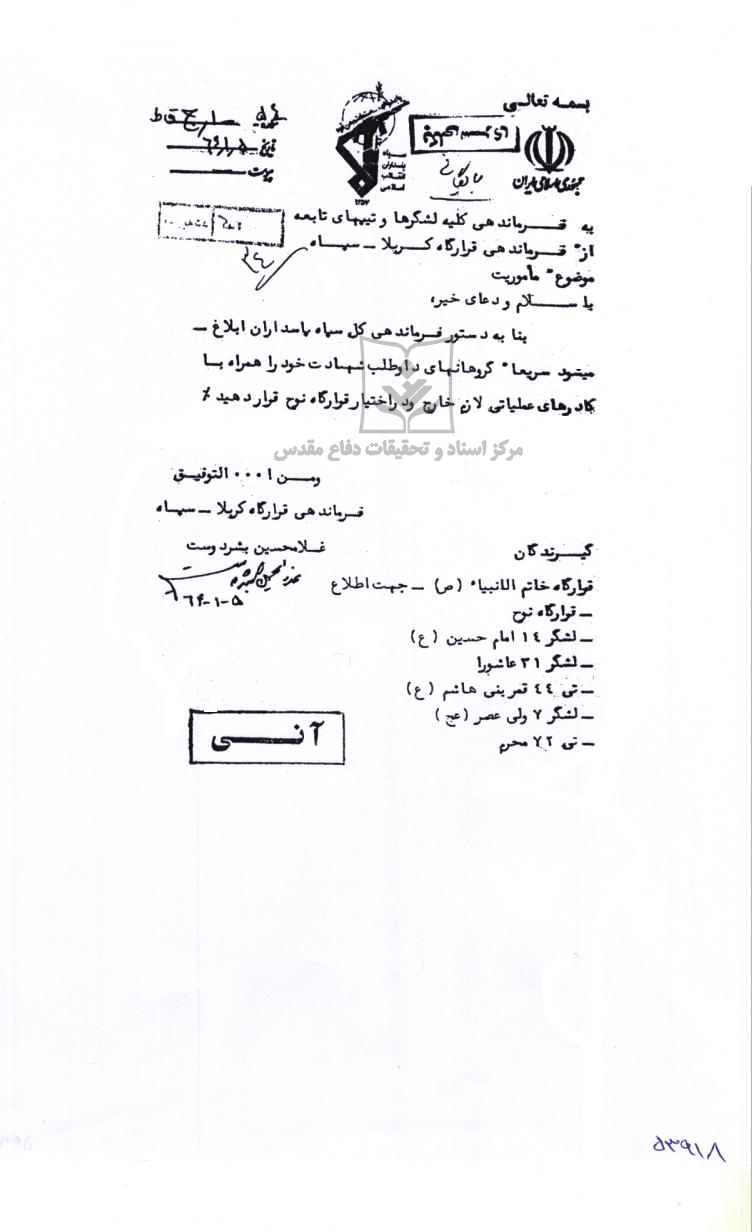 بسمه تعالی
جمهوری اسلامی ایران
سپاه
پاسداران
انقلاب
اسلامی
۱۳۵۷
شماره
تاریخ ۶۴/۱/۵
پیوست
بایگانی
به فرماندهی کلیه لشگرها و تیپهای تابعه
از" فرماندهی قرارگاه کربلا ــ سپاه
موضوع" مأموریت
با سلام و دعای خیر،
بنا به دستور فرماندهی کل سپاه پاسداران ابلاغ ــ
میشود سریعا" گروهانهای داوطلب شهادت خود را همراه با
کادرهای عملیاتی لازم خارج ودراختیار قرارگاه نوح قرار دهید ٪
مرکز اسناد و تحقیقات دفاع مقدس
ومن ا۰۰۰ التوفیق
فرماندهی قرارگاه کربلا ــ سپاه
غلامحسین بشردوست
۶۴-۱-۵
گیرندگان
قرارگاه خاتم الانبیاء (ص) ــ جهت اطلاع
ــ قرارگاه نوح
ــ لشگر ۱٤ امام حسین (ع)
ــ لشگر ۳۱ عاشورا
ــ تی ٤٤ قمربنی هاشم (ع)
ــ لشگر ۷ ولی عصر (عج)
ــ تی ۷۲ محرم
آنی
۵۳۹۱۸